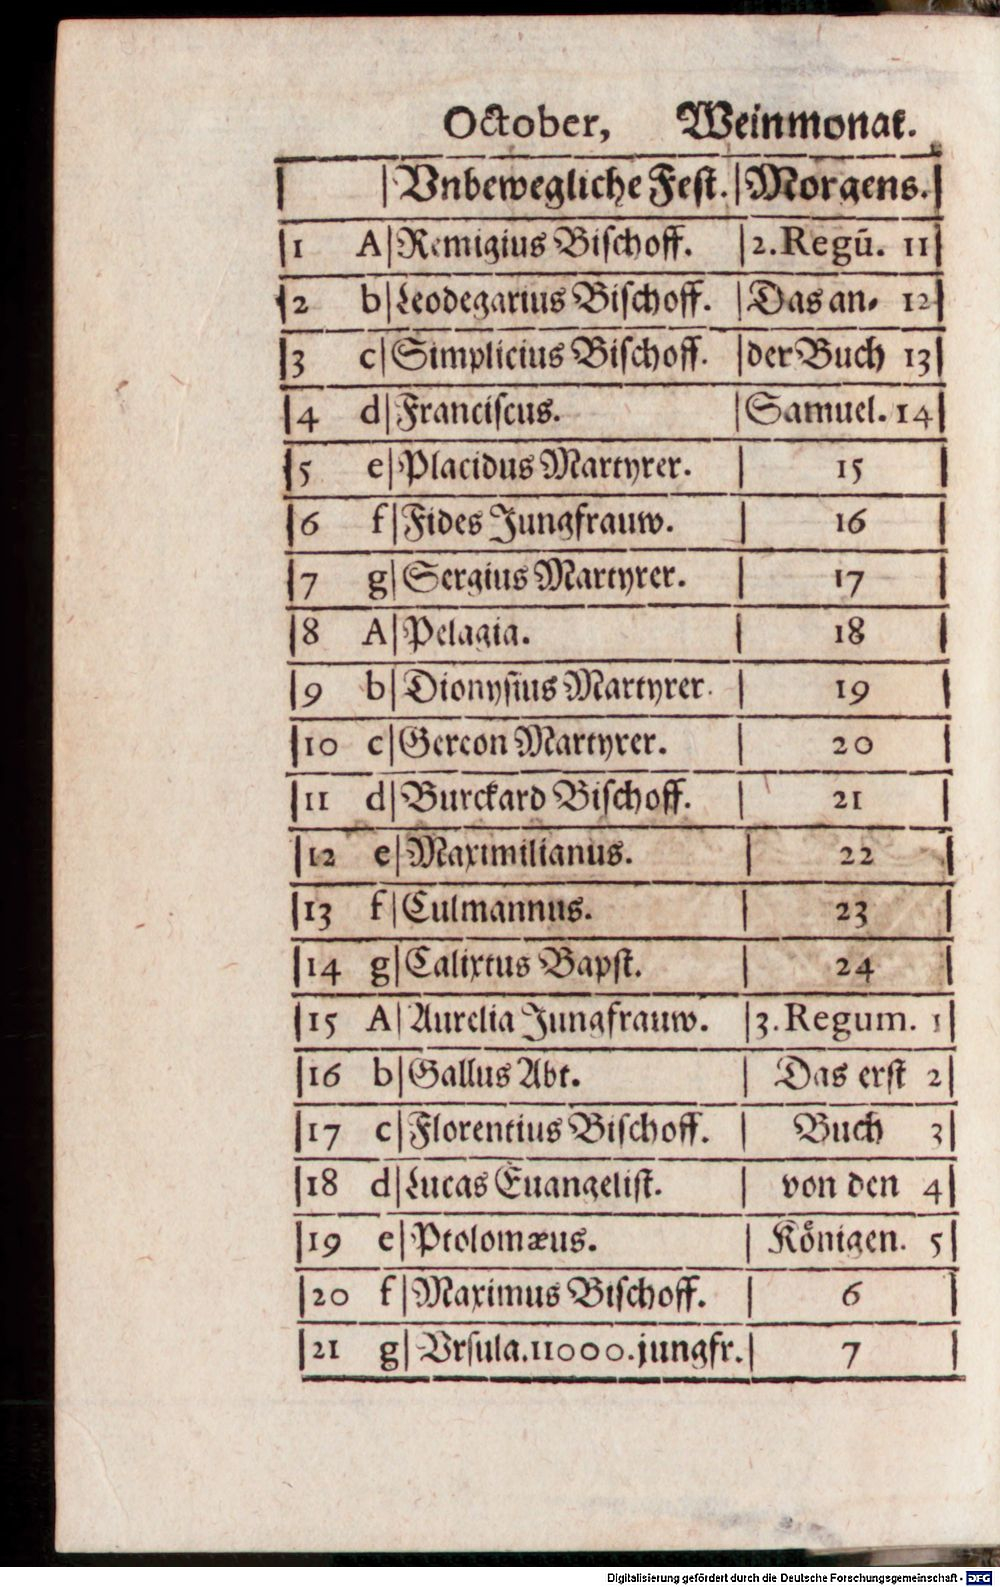 October, Weinmonat.
Vnbewegliche Fest. Morgens.
1 A Remigius Bischoff. 2. Regũ. 11
2 b Leodegarius Bischoff. Das an⸗ 12
3 c Simplicius Bischoff. der Buch 13
4 d Franciscus. Samuel. 14
5 e Placidus Martyrer. 15
6 f Fides Jungfrauw. 16
7 g Sergius Martyrer. 17
8 A Pelagia. 18
9 b Dionysius Martyrer. 19
10 c Gereon Martyrer. 20
11 d Burckard Bischoff. 21
12 e Maximilianus. 22
13 f Culmannus. 23
14 g Calixtus Bapst. 24
15 A Aurelia Jungfrauw. 3. Regum. 1
16 b Gallus Abt. Das erst 2
17 c Florentius Bischoff. Buch 3
18 d Lucas Euangelist. von den 4
19 e Ptolomæus. Koͤnigen. 5
20 f Maximus Bischoff. 6
21 g Vrsula. 11000. jungfr. 7
Digitalisierung gefördert durch die Deutsche Forschungsgemeinschaft - DFG